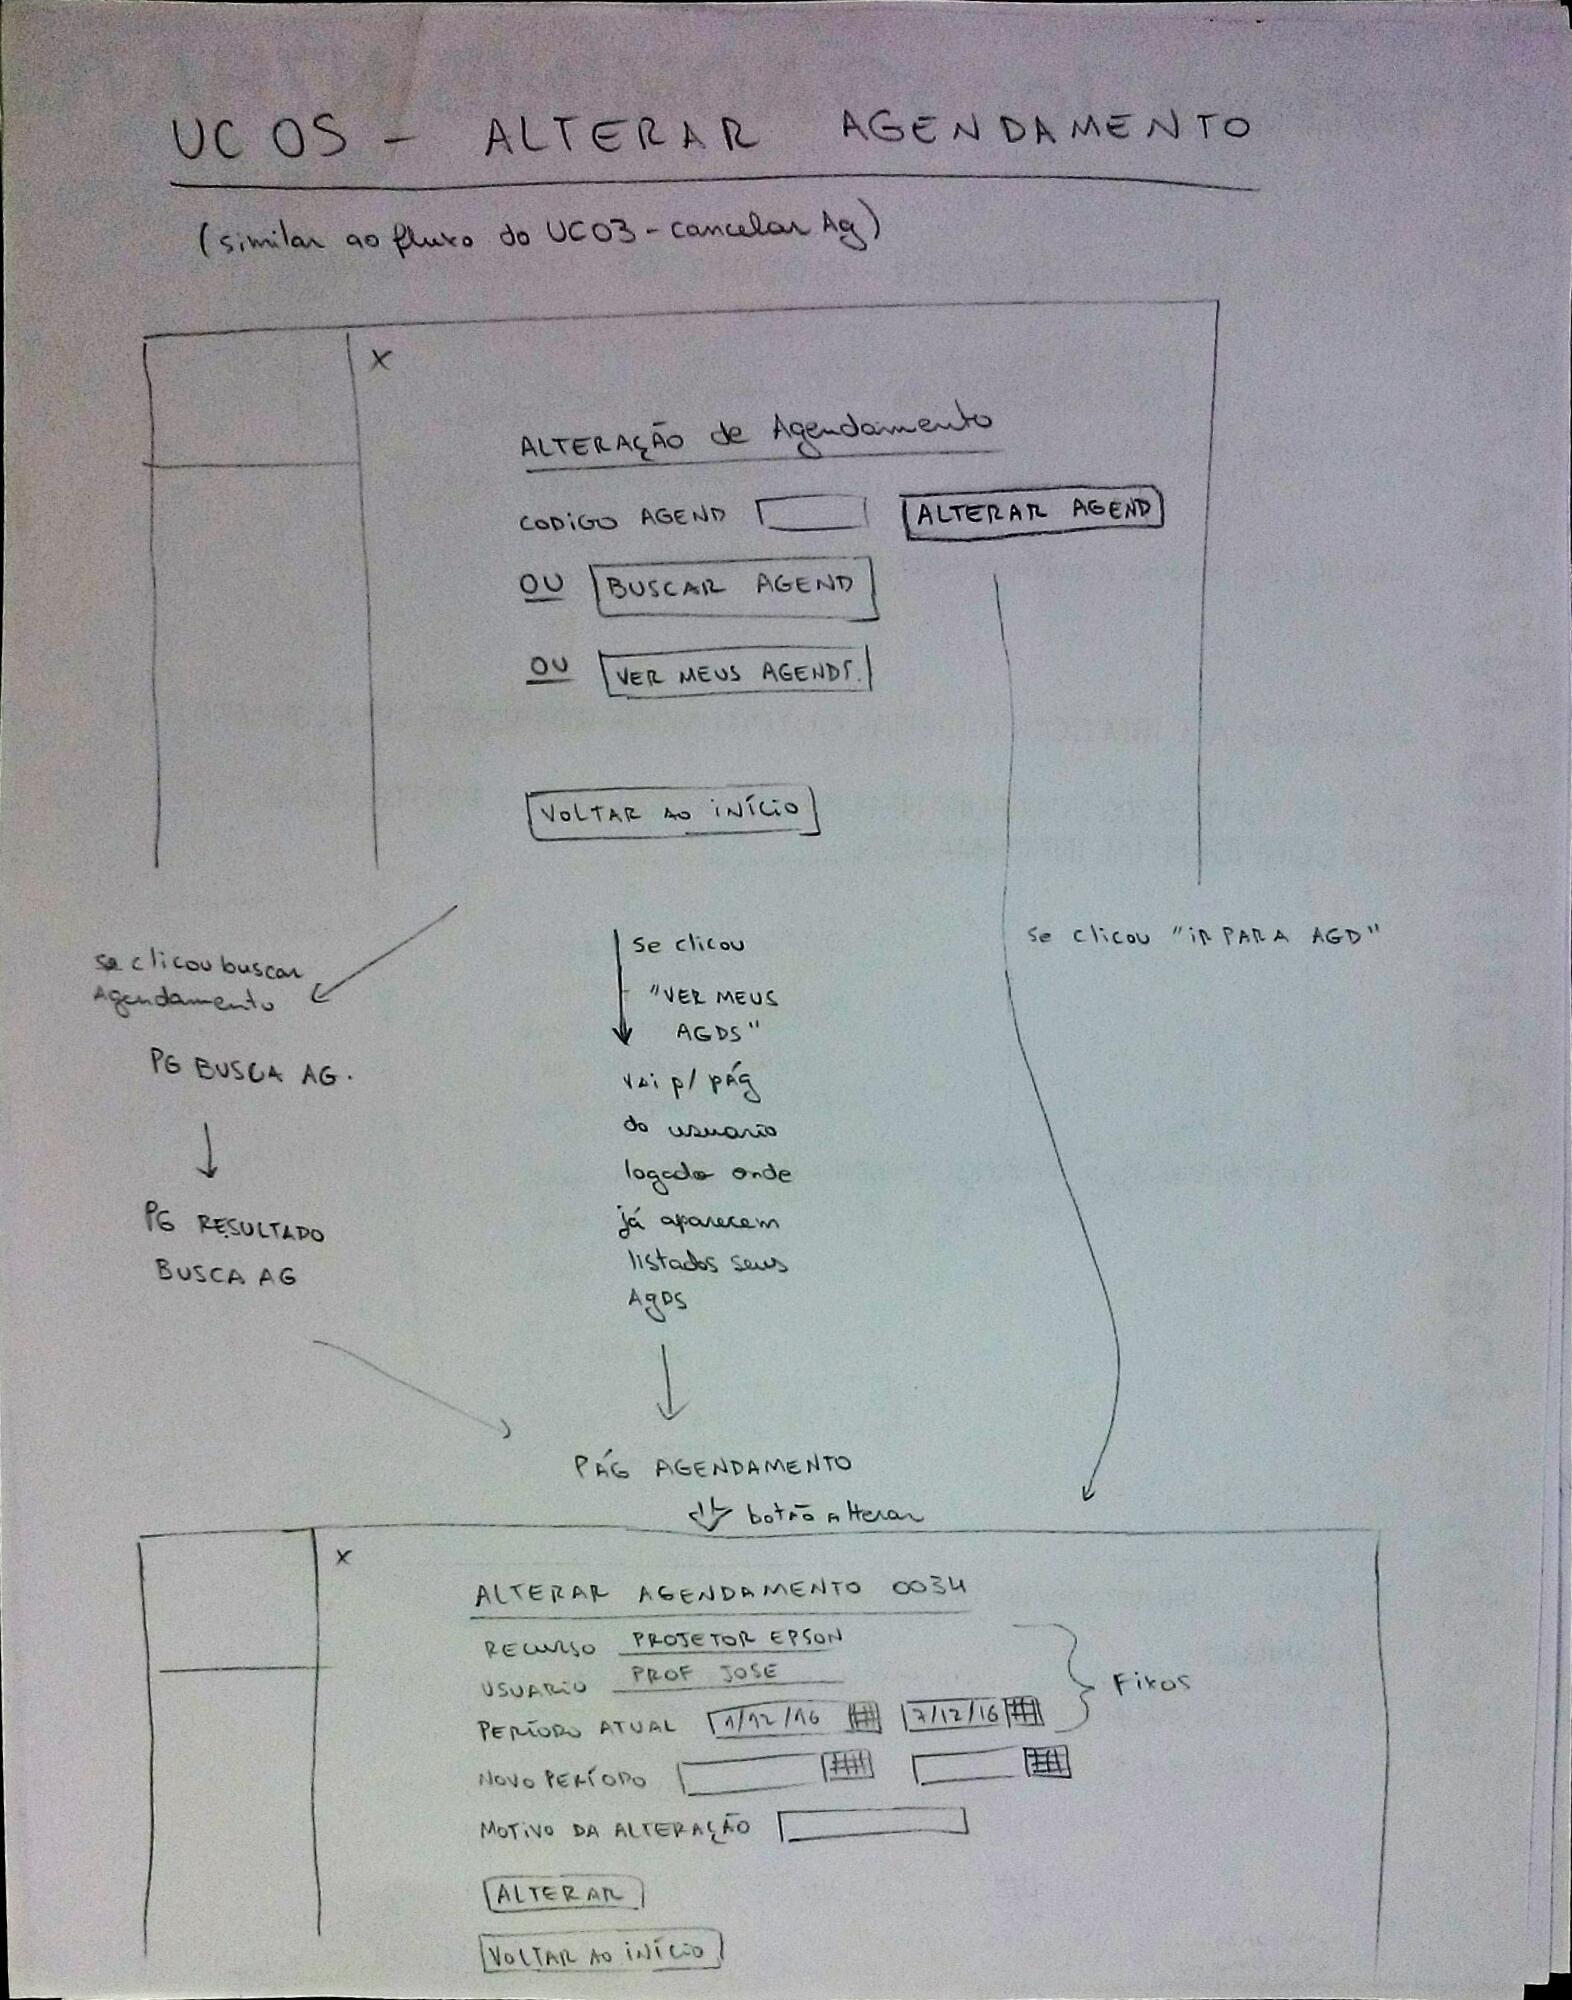 UC05 - ALTERAR AGENDAMENTO
(similar ao fluxo do UC03 - cancelar Ag)
X
ALTERAÇÃO de Agendamento
CODIGO AGEND ALTERAR AGEND
OU BUSCAR AGEND
OU VER MEUS AGENDS.
VOLTAR AO INÍCIO
se clicou buscar
Agendamento
PG BUSCA AG.
PG RESULTADO
BUSCA AG
se clicou
"VER MEUS
AGDS"
vai p/ pág
do usuario
logado onde
já aparecem
listados seus
AgDS
se clicou "IR PARA AGD"
PÁG AGENDAMENTO
botão alterar
X
ALTERAR AGENDAMENTO 0034
RECURSO PROJETOR EPSON
USUARIO PROF JOSE
PERÍODO ATUAL 1/12/16 7/12/16
Fixos
NOVO PERÍODO
MOTIVO DA ALTERAÇÃO
ALTERAR
VOLTAR AO INÍCIO